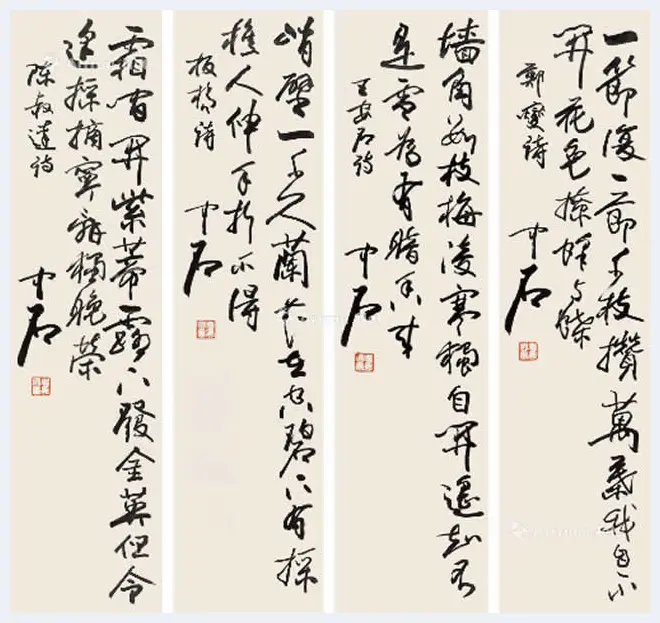 一節復一節千枝攢萬葉我自不
開花免撩蜂与蝶
鄭燮詩
中石
墙角數枝梅凌寒獨自開遥知不
是雪為有暗香來
王安石詩
中石
峭壁一千尺蘭花在空碧下有採
樵人伸手折不得
板橋詩
中石
霜間開紫蒂露下發金英但令
逢採摘寧辭獨晚榮
陈叔達詩
中石